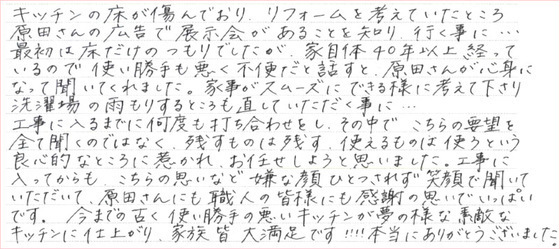 キッチンの床が傷んでおり、リフォームを考えていたところ
原田さんの広告で展示会があることを知り、行く事に…
最初は床だけのつもりでしたが、家自体40年以上経って
いるので使い勝手も悪く不便だと話すと、原田さんが心身に
なって聞いてくれました。家事がスムーズにできる様に考えて下さり
洗濯場の雨もりするところも直していただく事に…
工事に入るまでに何度も打ち合わせをし、その中で、こちらの要望を
全て聞くのではなく、残すものは残す、使えるものは使うという
良心的なところに惹かれ、お任せしようと思いました。工事に
入ってからも、こちらの思いなど嫌な顔ひとつされず笑顔で聞いて
いただいて、原田さんにも職人の皆様にも感謝の思いでいっぱい
です。今までの古く使い勝手の悪いキッチンが夢の様な素敵な
キッチンに仕上がり、家族皆大満足です!!!!本当にありがとうございました